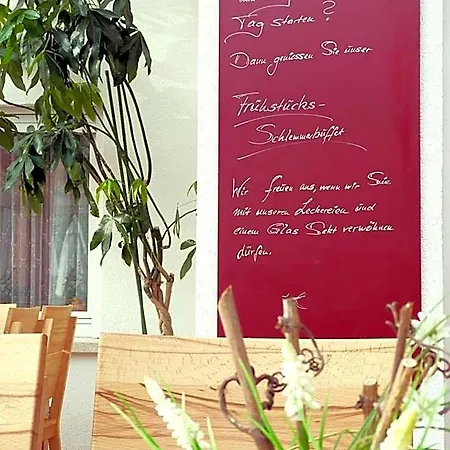 Tag starten?
Dann geniessen Sie unser
Frühstücks-
Schlemmerbüffet
Wir freuen uns, wenn wir Sie
mit unseren Leckereien und
einem Glas Sekt verwöhnen
dürfen.